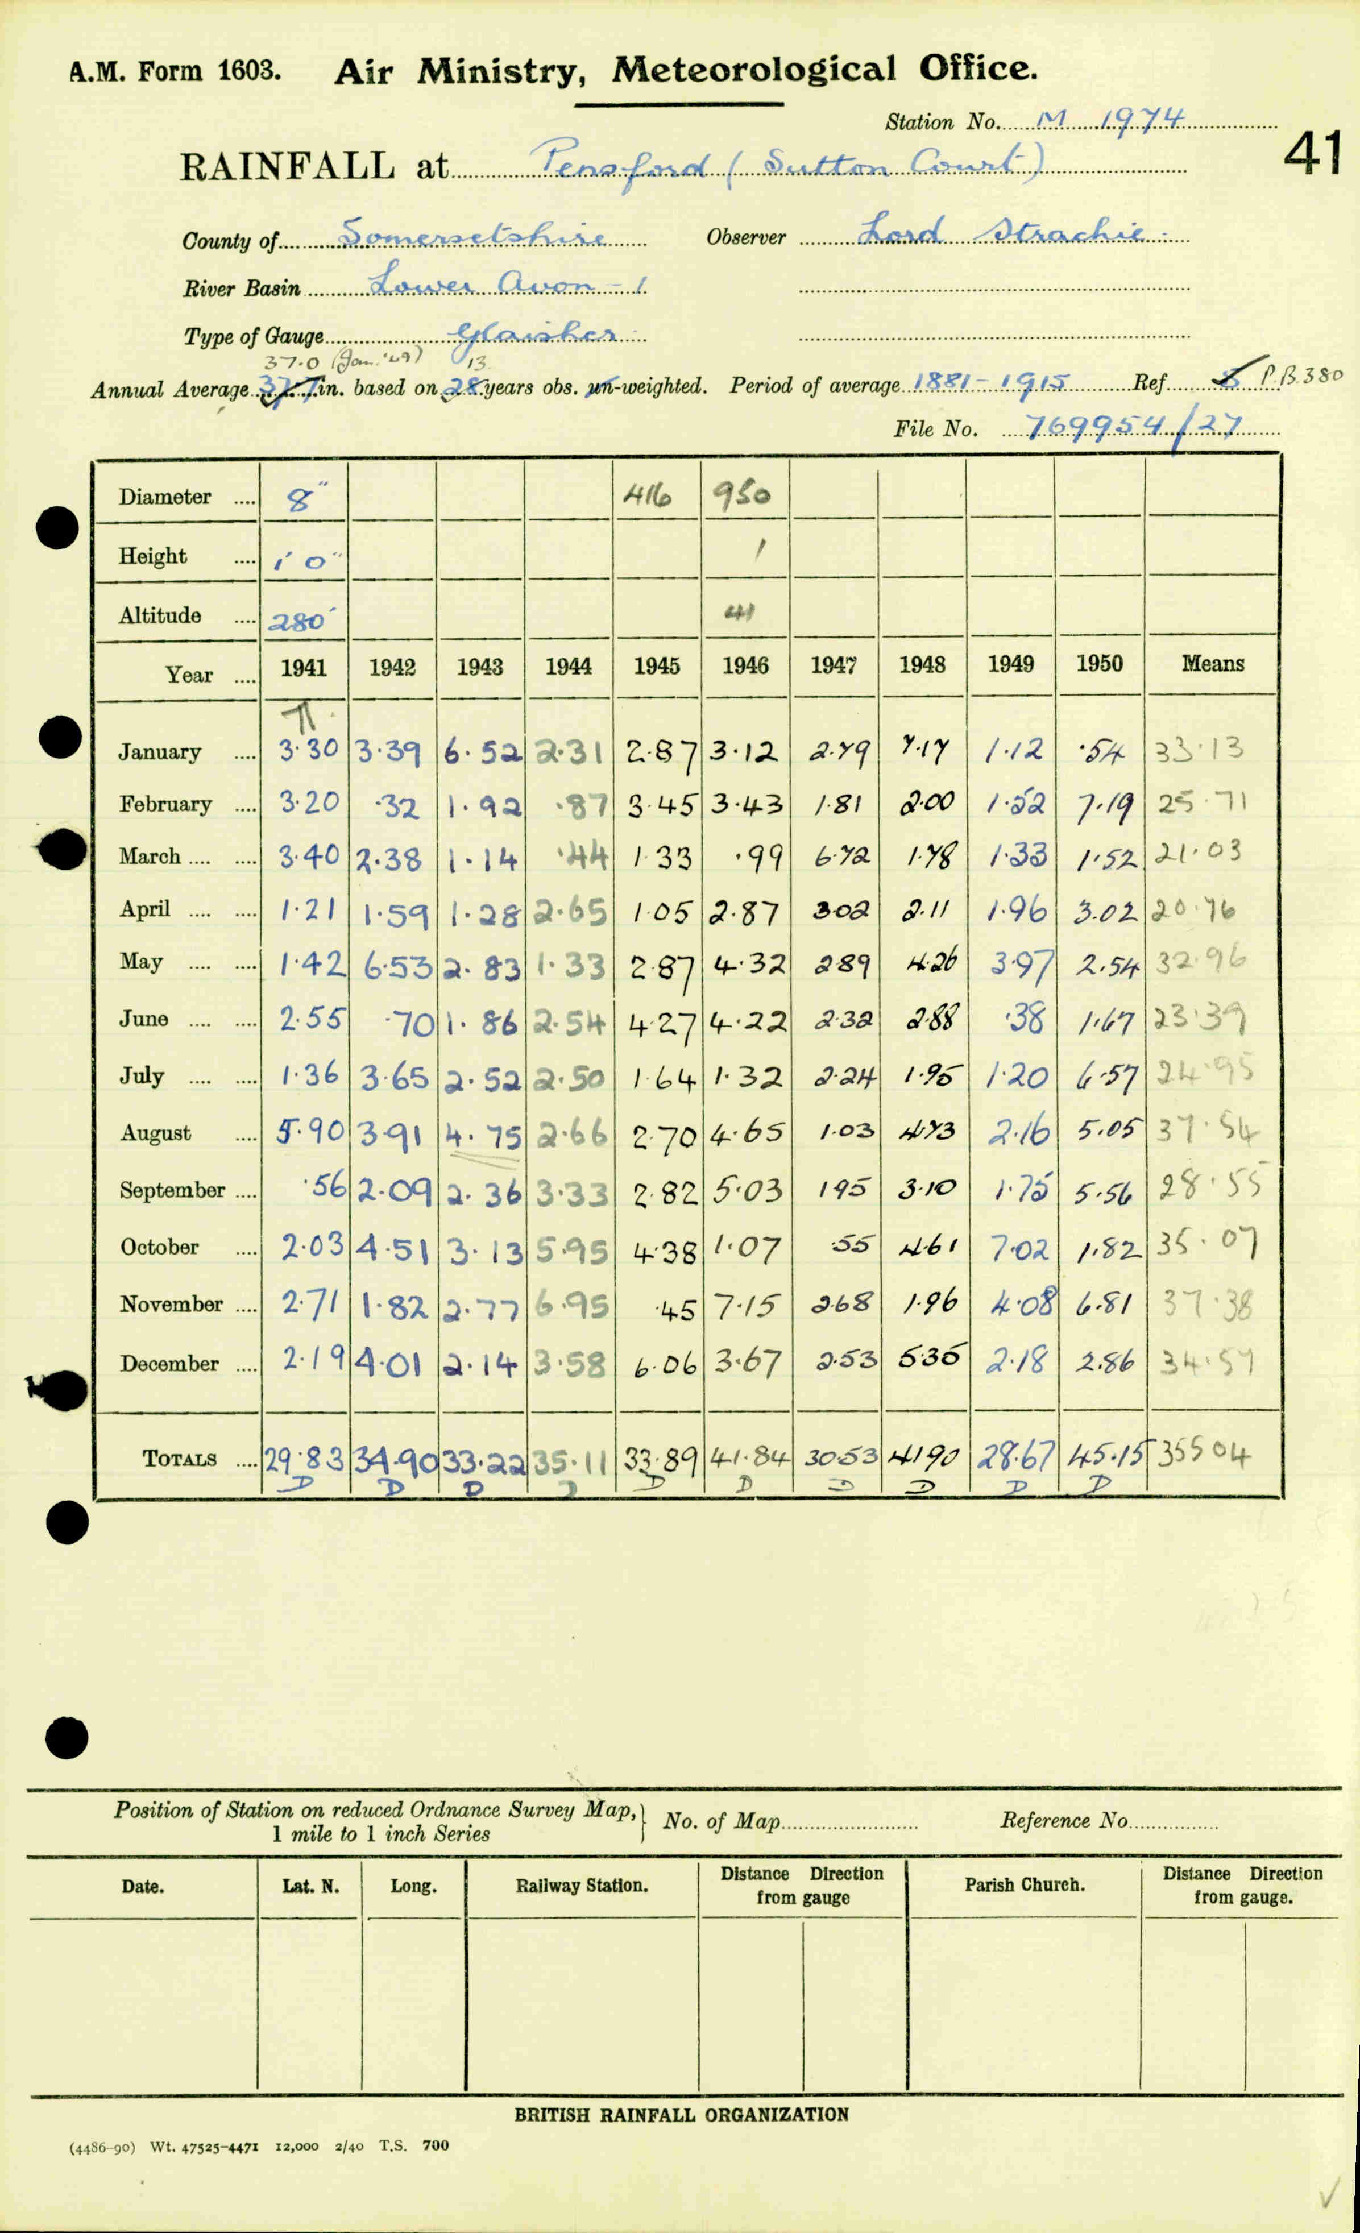 A.M. Form 1603. Air Ministry, Meteorological Office.
Station No. M 1974
41
RAINFALL at Pensford (Sutton Court)
County of Somersetshire Observer Lord Strachie.
River Basin Lower Avon - 1
Type of Gauge Glaisher
37.0 (Jan. '49) 13
Annual Average 37.7 in. based on 28 years obs. un-weighted. Period of average 1881-1915 Ref 8 P.B.380
File No. 769954/27
Diameter .... 8" 416 950
Height .... 1' 0" 1
Altitude .... 280' 41
Year .... 1941 1942 1943 1944 1945 1946 1947 1948 1949 1950 Means
January .... 3.30 3.39 6.52 2.31 2.87 3.12 2.79 7.17 1.12 .54 33.13
February .... 3.20 .32 1.92 .87 3.45 3.43 1.81 2.00 1.52 7.19 25.71
March .... .... 3.40 2.38 1.14 .44 1.33 .99 6.72 1.78 1.33 1.52 21.03
April .... .... 1.21 1.59 1.28 2.65 1.05 2.87 3.02 2.11 1.96 3.02 20.76
May .... .... 1.42 6.53 2.83 1.33 2.87 4.32 2.89 4.26 3.97 2.54 32.96
June .... .... 2.55 .70 1.86 2.54 4.27 4.22 2.32 2.88 .38 1.67 23.39
July .... .... 1.36 3.65 2.52 2.50 1.64 1.32 2.24 1.95 1.20 6.57 24.95
August .... 5.90 3.91 4.75 2.66 2.70 4.65 1.03 4.73 2.16 5.05 37.54
September .... .56 2.09 2.36 3.33 2.82 5.03 1.95 3.10 1.75 5.56 28.55
October .... 2.03 4.51 3.13 5.95 4.38 1.07 .55 4.61 7.02 1.82 35.07
November .... 2.71 1.82 2.77 6.95 .45 7.15 2.68 1.96 4.08 6.81 37.38
December .... 2.19 4.01 2.14 3.58 6.06 3.67 2.53 5.35 2.18 2.86 34.57
TOTALS .... 29.83 34.90 33.22 35.11 33.89 41.84 30.53 41.90 28.67 45.15 355 04
D D D D D D D D D D
Position of Station on reduced Ordnance Survey Map, 1 mile to 1 inch Series } No. of Map Reference No.
Date. Lat. N. Long. Railway Station. Distance from gauge Direction Parish Church. Distance Direction from gauge.
BRITISH RAINFALL ORGANIZATION
(4486-90) Wt. 47525-4471 12,000 2/40 T.S. 700